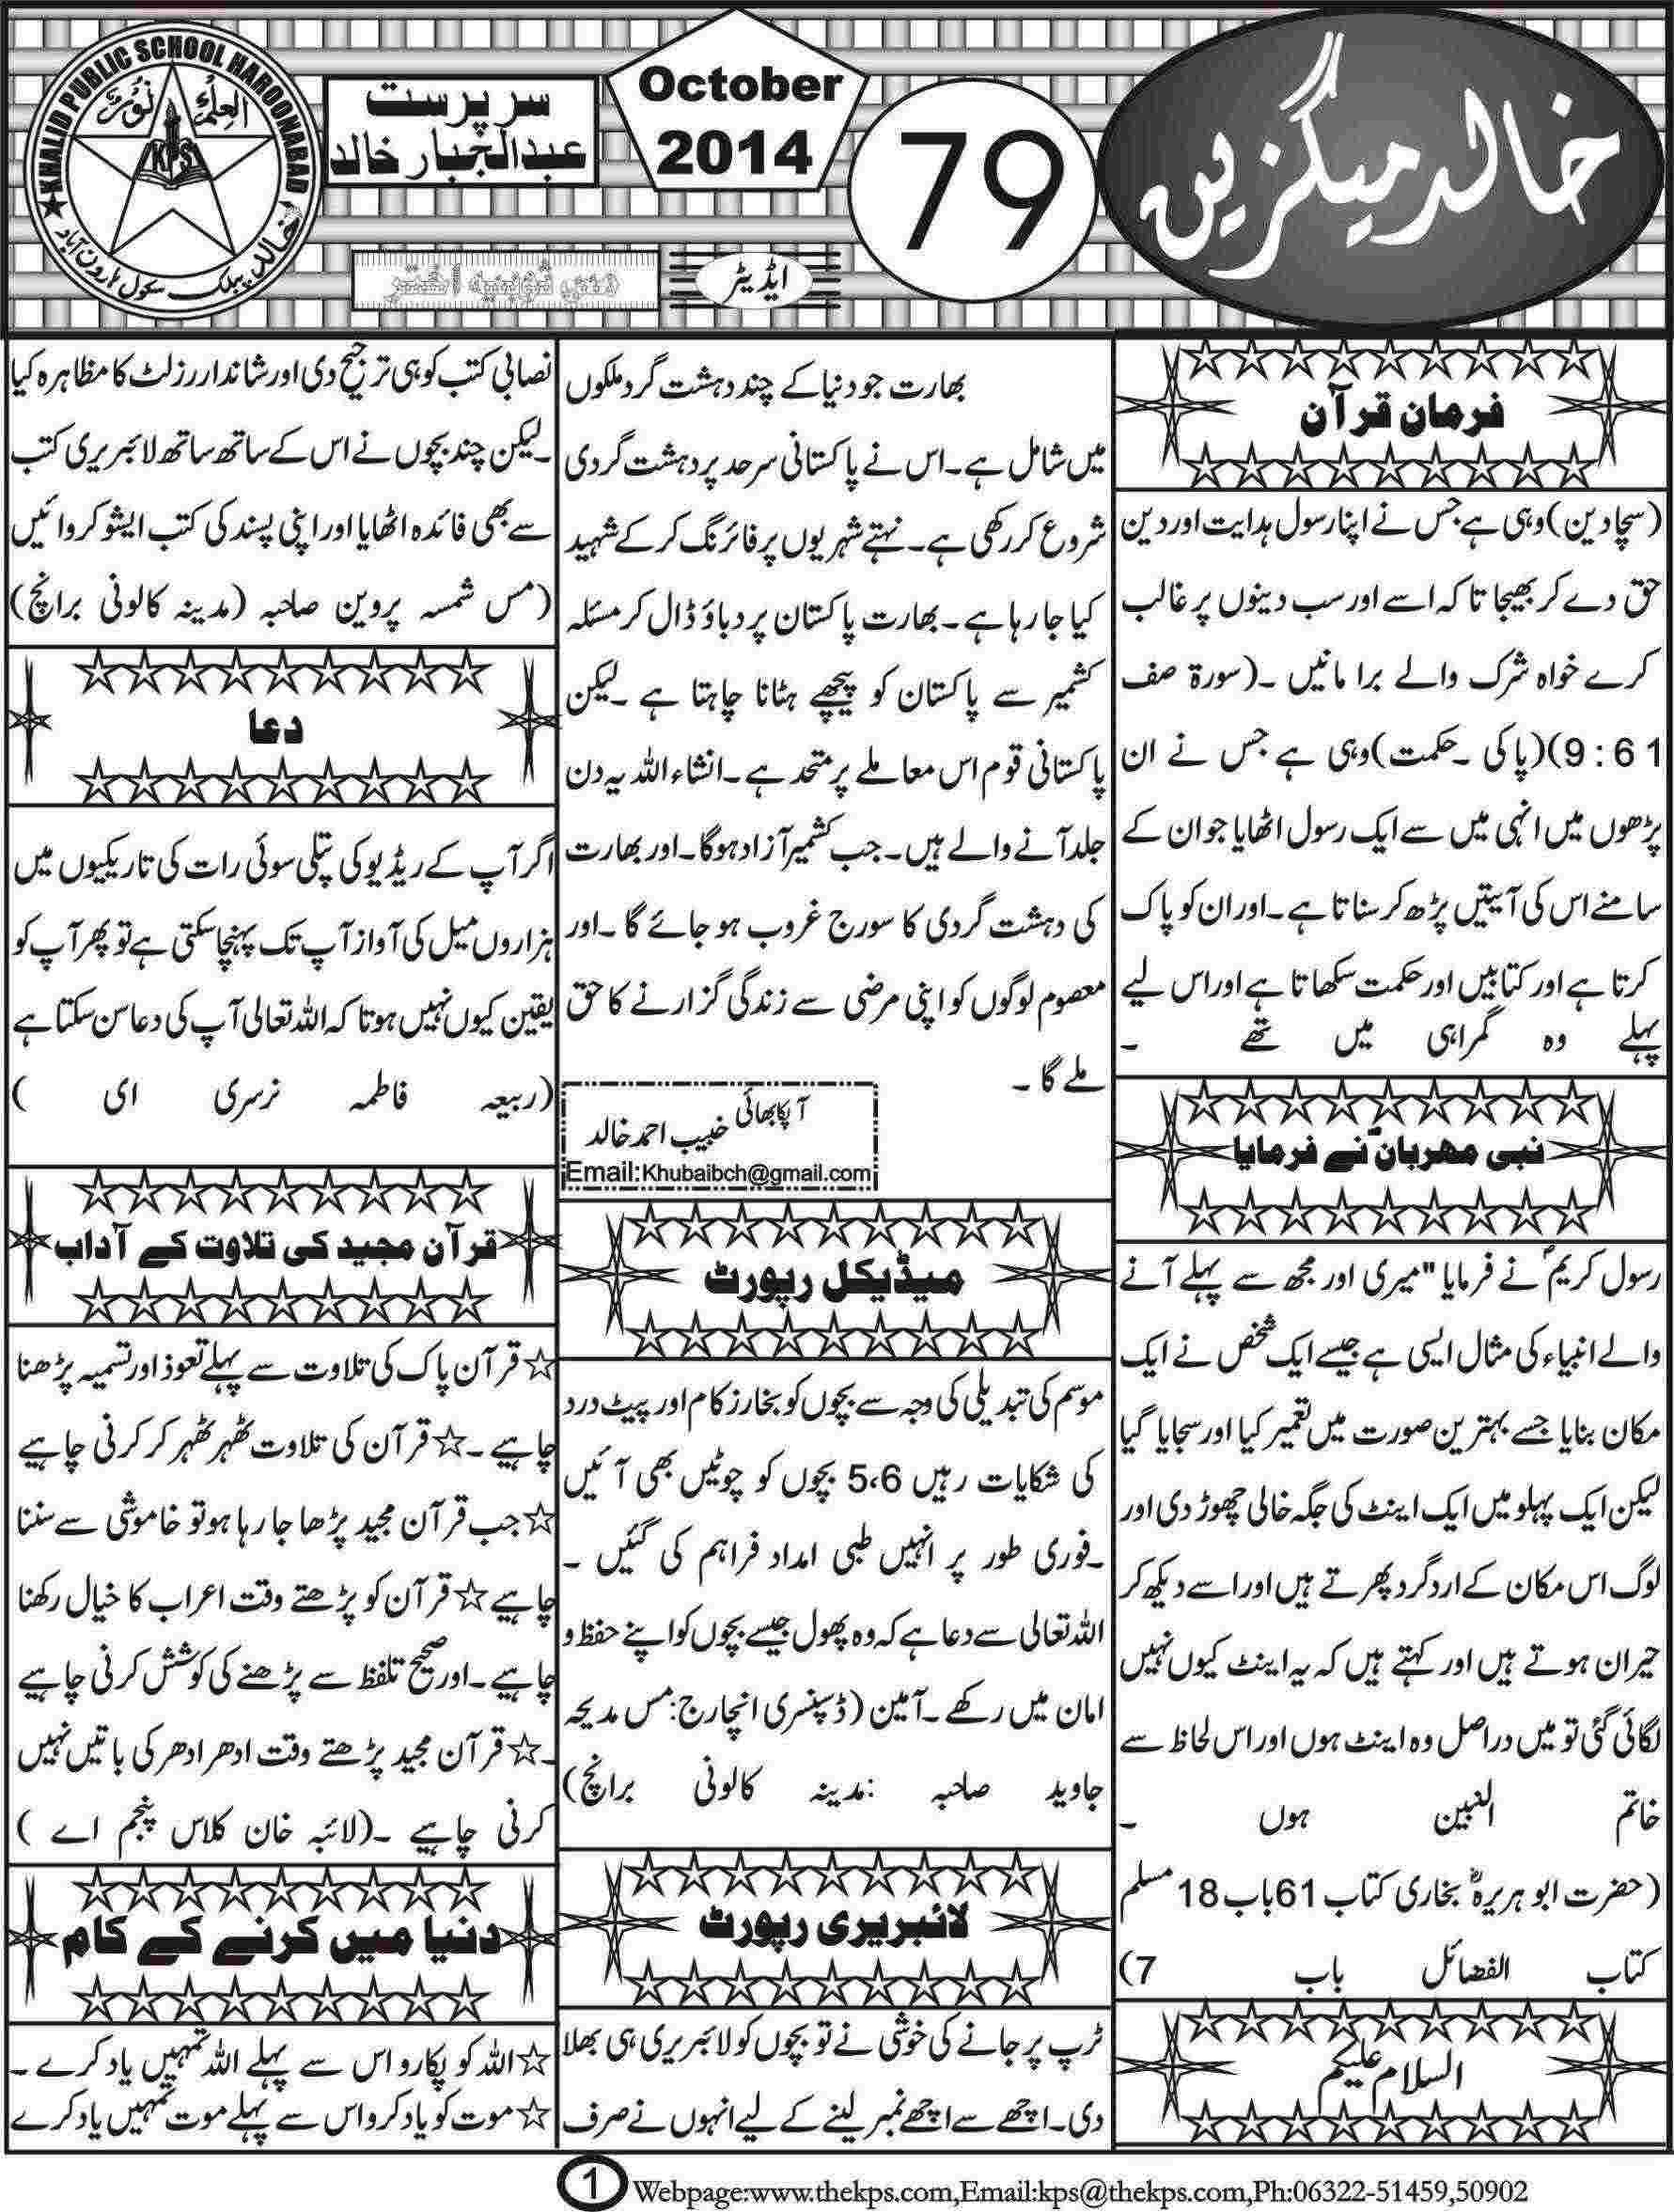 خالد میگزین
79
October
2014
سرپرست
عبدالجبار خالد
ایڈیٹر
KHALID PUBLIC SCHOOL HAROONABAD
العلم نور
KPS
خالد پبلک سکول ہارون آباد
فرمان قرآن
(سچا دین) وہی ہے جس نے اپنا رسول ہدایت اور دین
حق دے کر بھیجا تا کہ اسے اور سب دینوں پر غالب
کرے خواہ شرک والے برا مانیں ۔(سورۃ صف
9:61)(پاکی ۔ حکمت) وہی ہے جس نے ان
پڑھوں میں انہی میں سے ایک رسول اٹھایا جو ان کے
سامنے اس کی آیتیں پڑھ کر سناتا ہے۔ اور ان کو پاک
کرتا ہے اور کتابیں اور حکمت سکھاتا ہے اور اس لیے
پہلے وہ گمراہی میں تھے ۔
نبی مہربانؐ نے فرمایا
رسول کریمؐ نے فرمایا "میری اور مجھ سے پہلے آنے
والے انبیاء کی مثال ایسی ہے جیسے ایک شخص نے ایک
مکان بنایا جسے بہترین صورت میں تعمیر کیا اور سجایا گیا
لیکن ایک پہلو میں ایک اینٹ کی جگہ خالی چھوڑ دی اور
لوگ اس مکان کے ارد گرد پھرتے ہیں اور اسے دیکھ کر
حیران ہوتے ہیں اور کہتے ہیں کہ یہ اینٹ کیوں نہیں
لگائی گئی تو میں دراصل وہ اینٹ ہوں اور اس لحاظ سے
خاتم النبین ہوں ۔
(حضرت ابو ہریرہؓ بخاری کتاب 61 باب 18 مسلم
کتاب الفضائل باب 7)
السلام علیکم
بھارت جو دنیا کے چند دہشت گرد ملکوں
میں شامل ہے۔ اس نے پاکستانی سرحد پر دہشت گردی
شروع کر رکھی ہے۔ نہتے شہریوں پر فائرنگ کر کے شہید
کیا جا رہا ہے۔ بھارت پاکستان پر دباؤ ڈال کر مسئلہ
کشمیر سے پاکستان کو پیچھے ہٹانا چاہتا ہے ۔ لیکن
پاکستانی قوم اس معاملے پر متحد ہے۔ انشاء اللہ یہ دن
جلد آنے والے ہیں۔ جب کشمیر آزاد ہوگا۔ اور بھارت
کی دہشت گردی کا سورج غروب ہو جائے گا ۔ اور
معصوم لوگوں کو اپنی مرضی سے زندگی گزارنے کا حق
ملے گا ۔
آپکا بھائی خبیب احمد خالد
Email:Khubaibch@gmail.com
میڈیکل رپورٹ
موسم کی تبدیلی کی وجہ سے بچوں کو بخار زکام اور پیٹ درد
کی شکایات رہیں 5،6 بچوں کو چوٹیں بھی آئیں
۔فوری طور پر انہیں طبی امداد فراہم کی گئیں ۔
اللہ تعالی سے دعا ہے کہ وہ پھول جیسے بچوں کو اپنے حفظ و
امان میں رکھے ۔ آمین (ڈسپنسری انچارج: مس مدیحہ
جاوید صاحبہ :مدینہ کالونی برانچ)
لائبریری رپورٹ
ٹرپ پر جانے کی خوشی نے تو بچوں کو لائبریری ہی بھلا
دی۔ اچھے سے اچھے نمبر لینے کے لیے انہوں نے صرف
نصابی کتب کو ہی ترجیح دی اور شاندار رزلٹ کا مظاہرہ کیا
۔لیکن چند بچوں نے اس کے ساتھ ساتھ لائبریری کتب
سے بھی فائدہ اٹھایا اور اپنی پسند کی کتب ایشو کروائیں
(مس شمسہ پروین صاحبہ (مدینہ کالونی برانچ)
دعا
اگر آپ کے ریڈیو کی پتلی سوئی رات کی تاریکیوں میں
ہزاروں میل کی آواز آپ تک پہنچا سکتی ہے تو پھر آپ کو
یقین کیوں نہیں ہوتا کہ اللہ تعالی آپ کی دعا سن سکتا ہے
(ربیعہ فاطمہ نرسری ای )
قرآن مجید کی تلاوت کے آداب
☆قرآن پاک کی تلاوت سے پہلے تعوذ اور تسمیہ پڑھنا
چاہیے ۔☆قرآن کی تلاوت ٹھہر ٹھہر کر کرنی چاہیے
☆جب قرآن مجید پڑھا جا رہا ہو تو خاموشی سے سننا
چاہیے ☆قرآن کو پڑھتے وقت اعراب کا خیال رکھنا
چاہیے ۔اور صحیح تلفظ سے پڑھنے کی کوشش کرنی چاہیے
۔☆قرآن مجید پڑھتے وقت ادھر ادھر کی باتیں نہیں
کرنی چاہیے ۔(لائبہ خان کلاس پنجم اے )
دنیا میں کرنے کے کام
☆اللہ کو پکارو اس سے پہلے اللہ تمہیں یاد کرے ۔
☆موت کو یاد کرو اس سے پہلے موت تمہیں یاد کرے
1
Webpage:www.thekps.com,Email:kps@thekps.com,Ph:06322-51459,50902